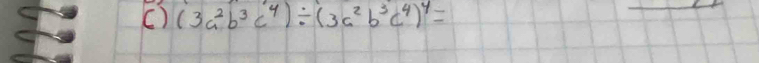 c) (3a²b³c⁴) ÷ (3a²b³c⁴)⁴ =